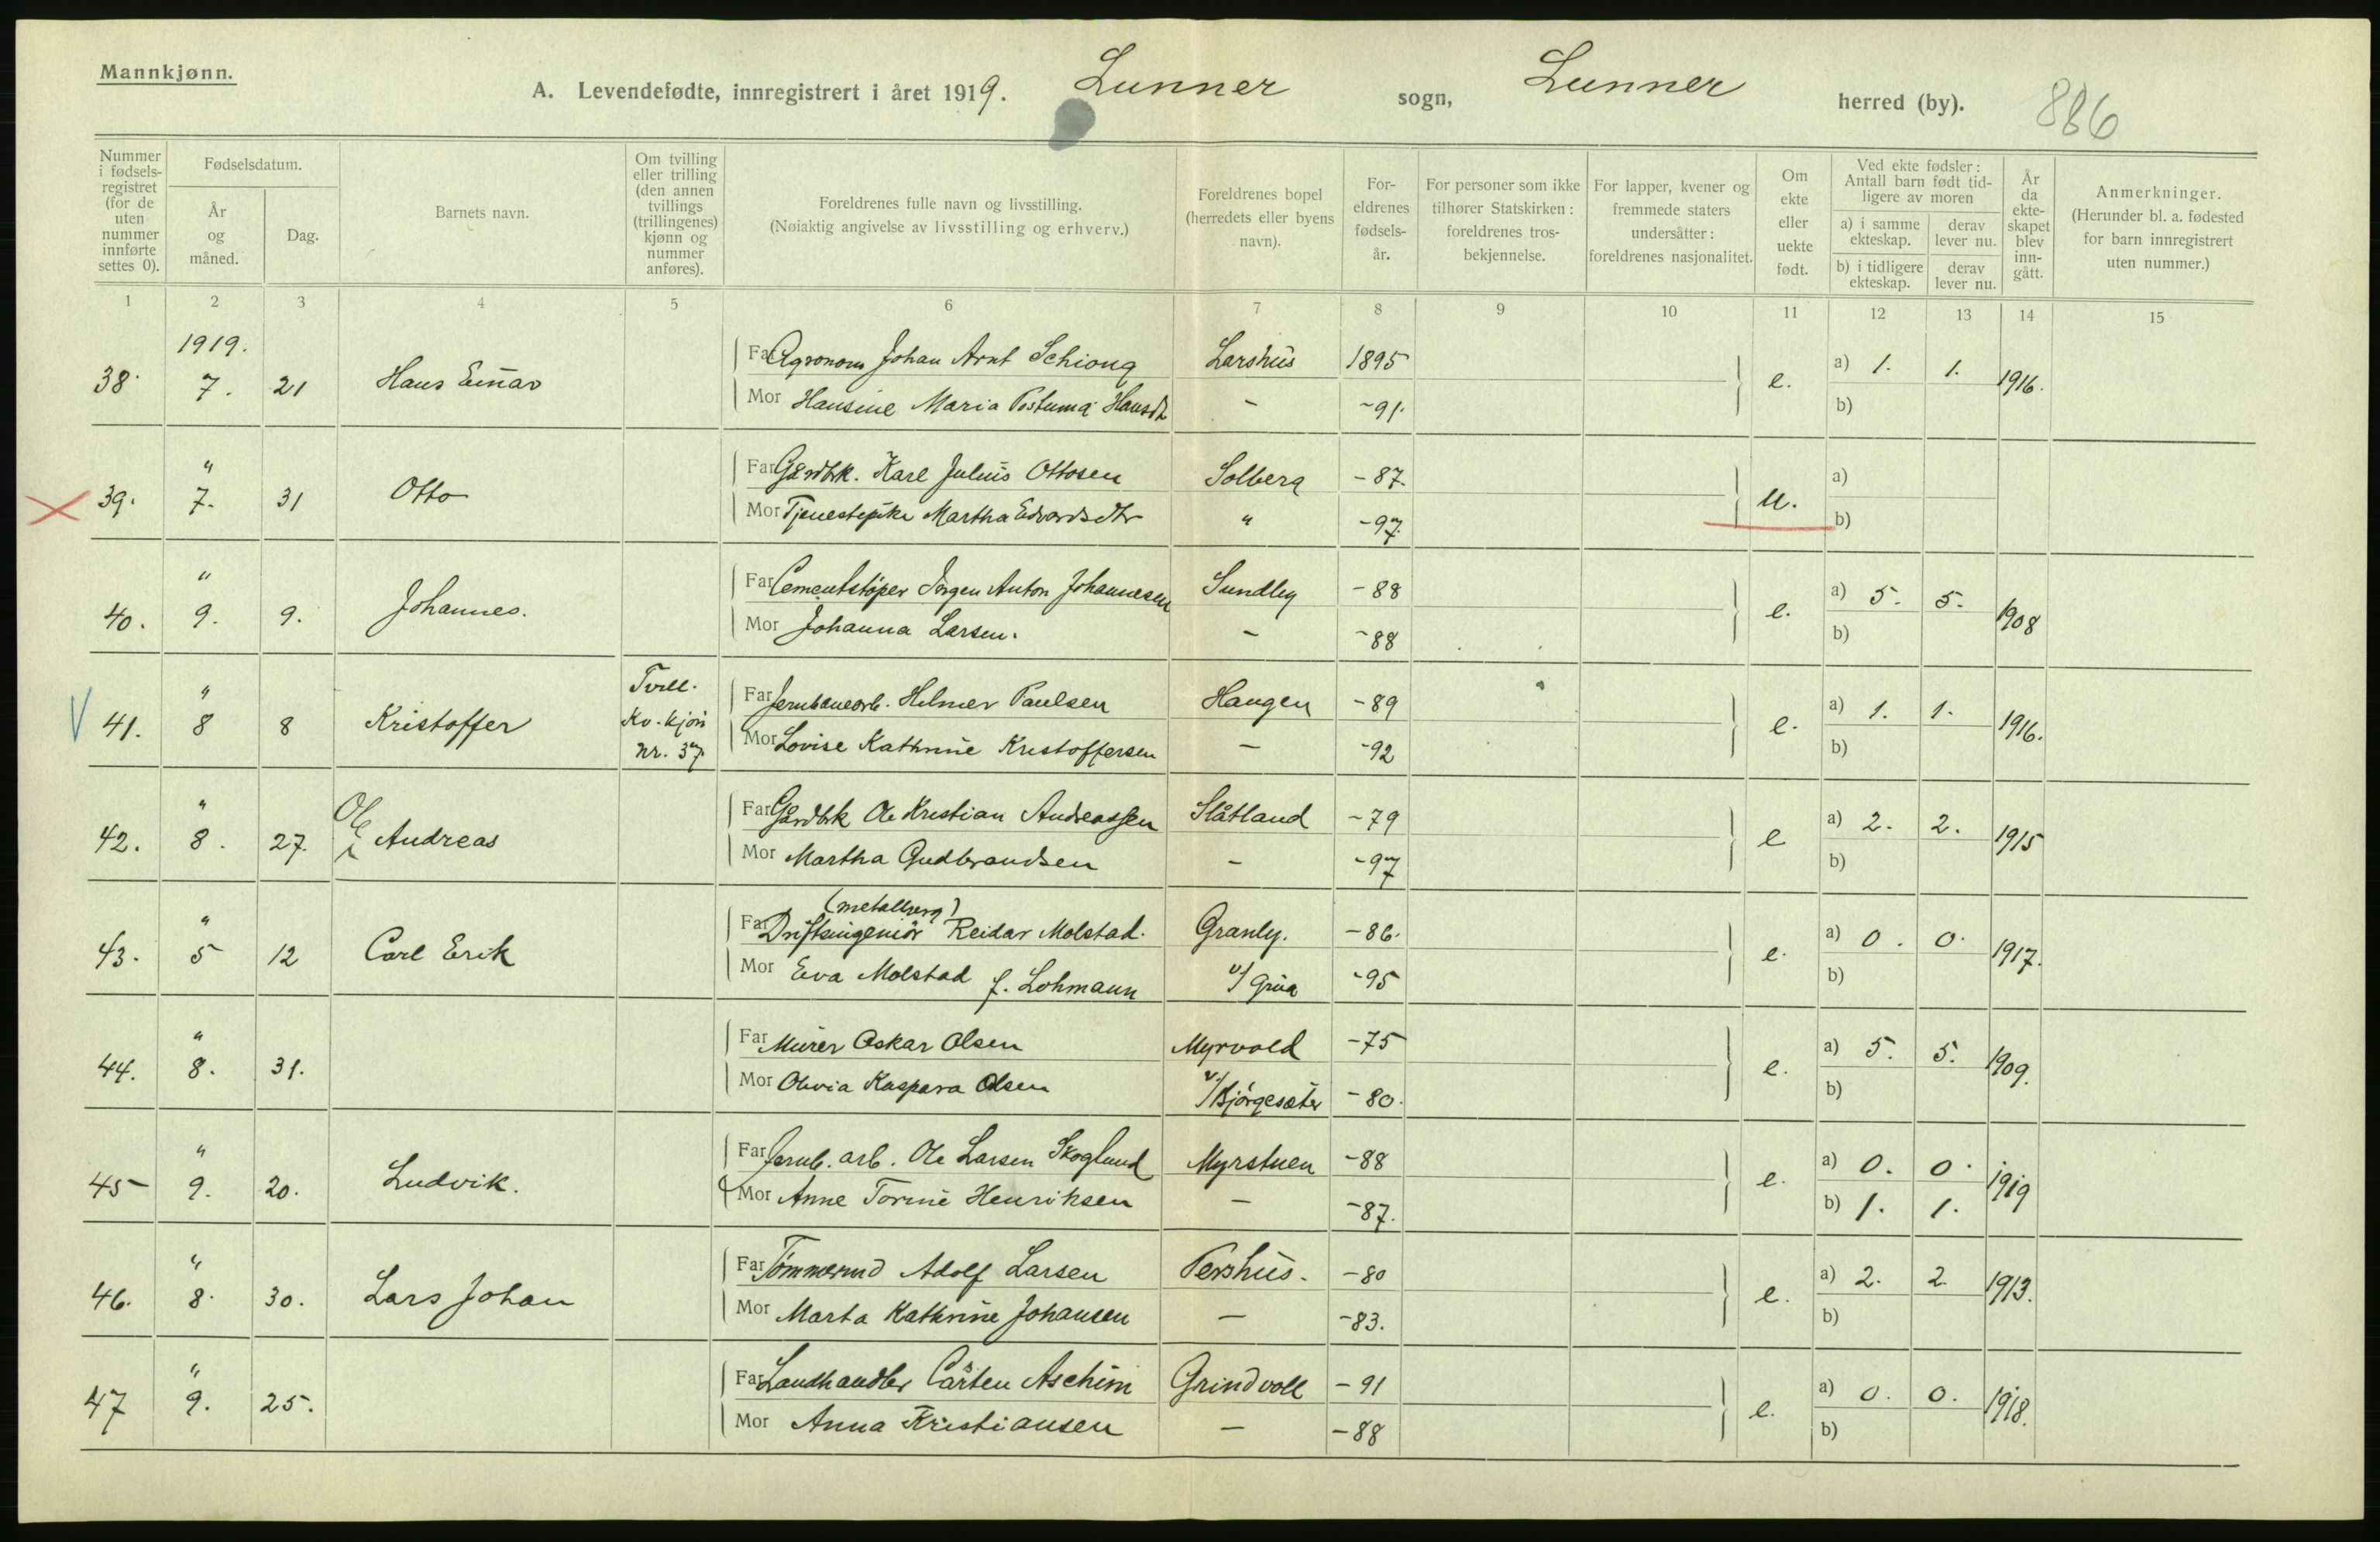 Mannkjønn.
A. Levendefødte, innregistrert i året 1919. Lunner sogn, Lunner herred (by). 886
Nummer i fødsels-registret (for de uten nummer innførte settes 0).
Fødselsdatum.
År og måned.
Dag.
Barnets navn.
Om tvilling eller trilling (den annen tvillings (trillingenes) kjønn og nummer anføres).
Foreldrenes fulle navn og livsstilling.
(Nøiaktig angivelse av livsstilling og erhverv.)
Foreldrenes bopel (herredets eller byens navn).
For-eldrenes fødsels-år.
For personer som ikke tilhører Statskirken: foreldrenes tros-bekjennelse.
For lapper, kvener og fremmede staters undersåtter: foreldrenes nasjonalitet.
Om ekte eller uekte født.
Ved ekte fødsler: Antall barn født tid-ligere av moren
a) i samme ekteskap. derav lever nu.
b) i tidligere ekteskap. derav lever nu.
År da ekte-skapet blev inn-gått.
Anmerkninger.
(Herunder bl. a. fødested for barn innregistrert uten nummer.)
1 2 3 4 5 6 7 8 9 10 11 12 13 14 15
1919.
38. 7. 21 Hans Einar Far Agronom Johan Arnt Schiong Larshus 1895 e. a) 1. 1. 1916.
Mor Hansine Maria Postuma Hansdt - -91. b)
"
39. 7. 31 Otto Far Gårdbk. Karl Julius Ottosen Solberg -87. u. a)
Mor Tjenestepike Martha Edvardsdtr " -97. b)
"
40. 9. 9. Johannes. Far Cementstöper Jörgen Anton Johannesen Sundby -88 e. a) 5. 5. 1908
Mor Johanna Larsen. - -88 b)
"
41. 8 8 Kristoffer Tvill. Kv. kjön nr. 37. Far Jernbanearb. Hilmer Paulsen Haugen -89 e. a) 1. 1. 1916.
Mor Lovise Kathrine Kristoffersen - -92 b)
"
42. 8. 27. Ole Andreas Far Gårdbk Ole Kristian Andreassen Slåtland -79 e a) 2. 2. 1915
Mor Martha Gudbrandsen - -97 b)
"
(metallverg)
43. 5 12 Carl Erik Far Driftsingeniör Reidar Molstad. Granly. -86. e. a) 0. 0. 1917.
Mor Eva Molstad f. Lohmann v/ Grua -95 b)
"
44. 8. 31. Far Murer Oskar Olsen Myrvold -75 e. a) 5. 5. 1909.
Mor Olivia Kaspara Olsen v/ Bjørgesæter -80. b)
"
45 9. 20. Ludvik. Far Jernb. arb. Ole Larsen Skoglund Myrstuen -88 e. a) 0. 0. 1919
Mor Anne Torine Henriksen - -87. b) 1. 1.
"
46. 8. 30. Lars Johan Far Tömmermd Adolf Larsen Pershus. -80 e. a) 2. 2 1913.
Mor Marta Kathrine Johansen - -83. b)
"
47 9. 25. Far Landhandler Carsten Aschim Grindvoll -91 e. a) 0. 0. 1918.
Mor Anna Kristiansen - -88 b)